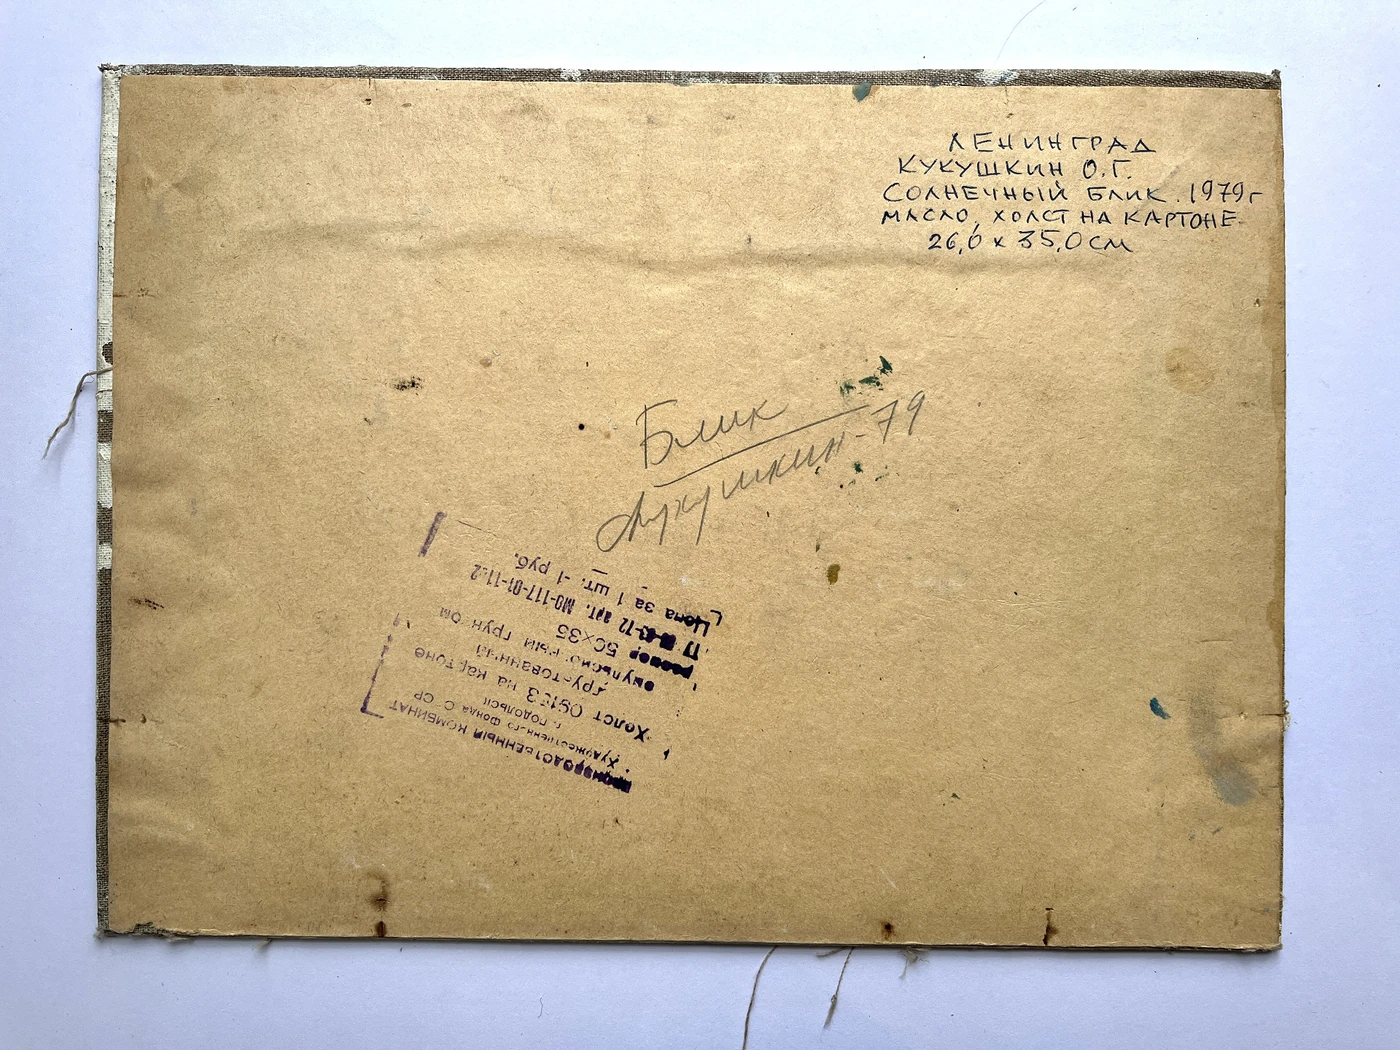 ЛЕНИНГРАД
КУКУШКИН О.Г.
СОЛНЕЧНЫЙ БЛИК. 1979г
МАСЛО, ХОЛСТ НА КАРТОНЕ
26,0 х 35,0 см
Блик
Кукушкин-79
ПРОИЗВОДСТВЕННЫЙ КОМБИНАТ
Художественного фонда С СР
г. ПОДОЛЬСК
Холст на картоне
грунтованный
эмульсионным грунтом
размер 50х35
арт. МО-117-01-11
Цена за 1 шт. -1 руб.